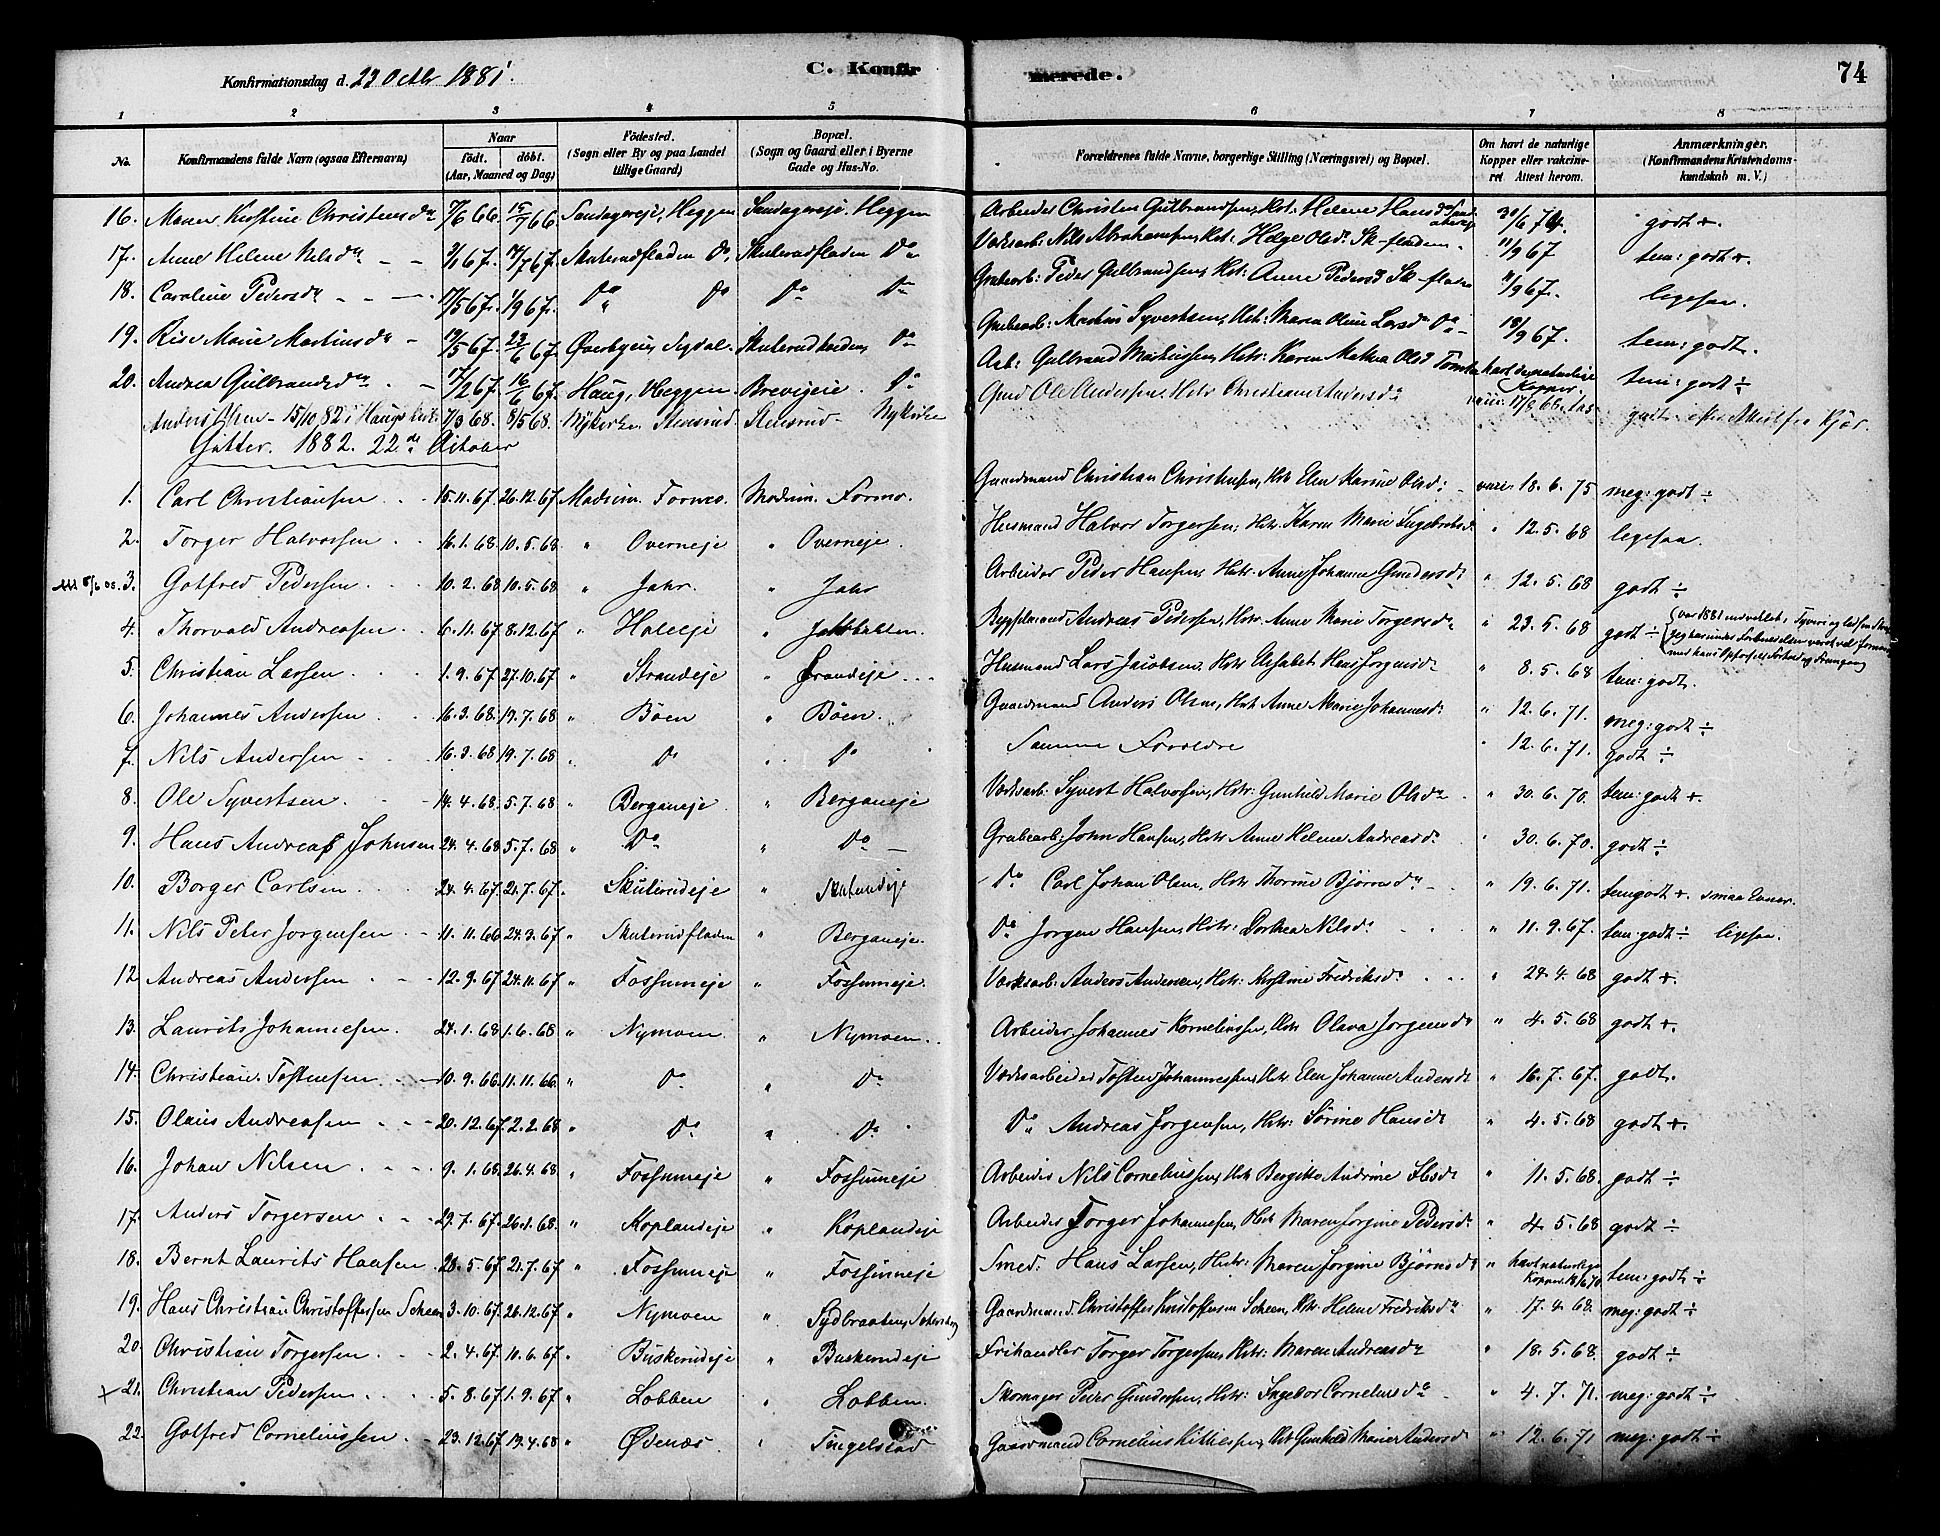 Konfirmationsdag d. 23 Octbr 1881.
C. Konfirmerede.
74
1 2 3 4 5 6 7 8
No. Konfirmandens fulde Navn (ogsaa Efternavn) Naar födt. döbt. (Aar, Maaned og Dag) Födested. (Sogn eller By og paa Landet tillige Gaard) Bopæl. (Sogn og Gaard eller i Byerne Gade og Hus-No. Forældrenes fulde Navne, borgerlige Stilling (Næringsvei) og Bopæl. Om havt de naturlige Kopper eller vakcineret. Attest herom. Anmærkninger. (Konfirmandens Kristendomskundskab m. V.)
16. Maren Kristine Christensdr 7/6 66 15/7 66 Sandagereje, Heggen Sandagereje. Heggen Arbeider Christen Gulbrandsen, Hst: Helene Hansdr 30/6 74. godt +.
17. Anne Helene Nilsdr 2/1 67. 14/7 67. Skuterudfladen Do Skuterudfladen Do Værksarb: Nils Abrahamsen, Hst: Helge Olsdr Sk-fladen 11/9 67 tem: godt +.
18. Caroline Pedersdr 17/5 67. 1/9 67. Do Do Do Do Grubearb: Peder Gulbrandsen, Hst: Anne Pedersdr Sk-fladen 11/9 67. ligesaa.
19. Marie Martinsdr 19/5 67. 23/6 67. Øverbyeie, Sigdal. Skuterudfladen Do Grubearb: Martin Syvertsen, Hst: Maren Oline Larsdr Do 18/9 67. tem: godt.
20. Andrea Gulbrandsdr 17/2 67. 16/6 67. Haug, Heggen Brevigeie Do Arb: Gulbrand Martinssen, Hstr: Karen Mathea Olsdr havt de naturlige Kopper. tem: godt ÷
Anders Olsen 15/10 82 i Haugs kirke 7/3 68. 8/5 68. Nykirke Stensrud. Stensrud Nykirke Gmd Ole Andersen, Hstr Christiane Andersdr 17/8 68. godt
Gutter. 1882. 22de October
1. Carl Christiansen 15.11.67. 26.12.67. Modum Formo. Modum. Formo. Gaardmand Christian Christensen, Hst Elen Karine Olsdr vacc. 18.6.75 meg: godt ÷
2. Torger Halvorsen 16.1.68. 10.5.68 " Overneje " Overneje. Husmand Halvor Torgersen, Hstr. Karen Marie Ingebretsdr " 12.5.68 ligesaa.
3. Gotfred Pedersen 10.2.68 10.5.68 " Jahr. " Jahr Arbeider Peder Hansen, Hstr. Anne Johanne Gundersdr " 12.5.68 godt ÷
4. Thorvald Andreasen 6.11.67. 8.12.67 " Holeeje " Andreas Pedersen, Hstr. Anne Marie Torgersdr " 23.5.68 godt ÷
5. Christian Larsen 1.9.67. 27.10.67 " Strandeje " Strandeje Husmand Lars Jacobsen, Hstr Elisabet Hans Jørgensdr " 8.5.68 tem: godt.
6. Johannes Andersen 16.3.68. 19.7.68 " Böen " Böen. Gaardmand Anders Olsen, Hst. Anne Marie Johannesdr " 12.6.71. meg: godt ÷
7. Nils Andersen 16.3.68 19.7.68 " Do " Do Samme Forældre " 12.6.71. godt ÷
8. Ole Syvertsen 14.4.68. 5.7.68 " Berganeje " Berganeje Værksarb: Syvert Halvorsen, Hstr: Gunhild Marie Olsdr " 30.6.70. tem: godt +.
9. Hans Andreas Johnsen 24.4.68 5.7.68 " Do " Do Grubearb: John Hansen, Hstr Anne Helene Andreasdr " 30.6.70. godt ÷
10. Borger Carlsen 24.4.67. 21.7.67. " Skuterudeje " Skuterudeje Do Carl Johan Olsen, Hstr Thorine Bjørnsdr " 19.6.71. temgodt +. smaa Evner.
11. Nils Peter Jorgensen 11.11.66 24.3.67. " Skuterudfladen " Berganeje. Do Jorgen Hansen, Hstr: Dorthea Nilsdr " 11.9.67. tem: godt ÷ ligesaa.
12. Andreas Andersen 12.9.67 24.11.67. " Fossumeje " Fossumeje. Værksarb: Anders Andersen, Hstr: Kirstine Fredriksdr " 24.4.68 godt +.
13. Laurits Johannesen. 24.1.68. 1.6.68 " Nymoen. " Nymoen. Arbeider Johannes Korneliussen, Hstr Olava Jorgensdr " 4.5.68 godt +.
14. Christian Tostensen 10.9.66. 11.11.66. " Do " Do Værksarbeider Tosten Johannessen, Hstr Elen Johanne Andersdr " 16.7.67. godt.
15. Olaus Andreasen 20.12.67. 2.2.68 " Do " Do Do Andreas Jorgensen, Hstr: Sørine Hansdr " 4.5.68 godt +.
16. Johan Nilsen 9.1.68. 26.4.68 " Fossumeje " Fossumeje Arbeider Nils Corneliussen, Hst Bergitte Andrine Ibsdr " 11.5.68. godt ÷
17. Anders Torgersen 29.7.67. 26.1.68. " Koplandeje " Koplandeje Arbeider Torger Johannesen, Hst Maren Jorgine Pedersdr " 4.5.68 godt ÷
18. Bernt Laurits Hansen 28.5.67. 21.7.67 " Fossumeje " Fossumeje Smed. Hans Larsen, Hstr: Maren Jorgine Bjørnsdr " havt naturlige Kopper tem: godt ÷
19. Hans Christian Christoffersen Skeen 3.10.67. 26.12.67 " Nymoen " Sydbraaten, Gaardmand. Christoffer Kristoffersen Scheen, Hst: Helene Fredriksdr " 17.4.68. meg: godt ÷
20. Christian Torgersen 2.4.67. 10.6.67. " Buskerudeje " Buskerudeje Frihandler Torger Torgersen, Hstr: Maren Andreasdr " 18.5.68. godt ÷
+ 21. Christian Pedersen 5.8.67. 1.9.67. " Lobben " Lobben. Skomager Peder Gundersen, Hstr: Ingebor Corneliusdr " 4.7.71. meg: godt ÷
22. Gotfred Corneliussen. 23.12.67. 19.4.68 " Ødenæs " Tingelstad Gaardmand Cornelius Kittelsen, Hst Gunhild Marie Andersdr " 12.6.71 meg: godt ÷